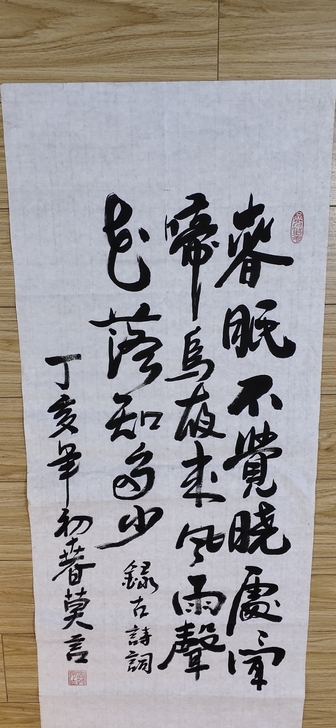 春眠不覺曉處處聞
啼鳥夜來風雨聲
花落知多少
錄古詩詞
丁亥年初春莫言